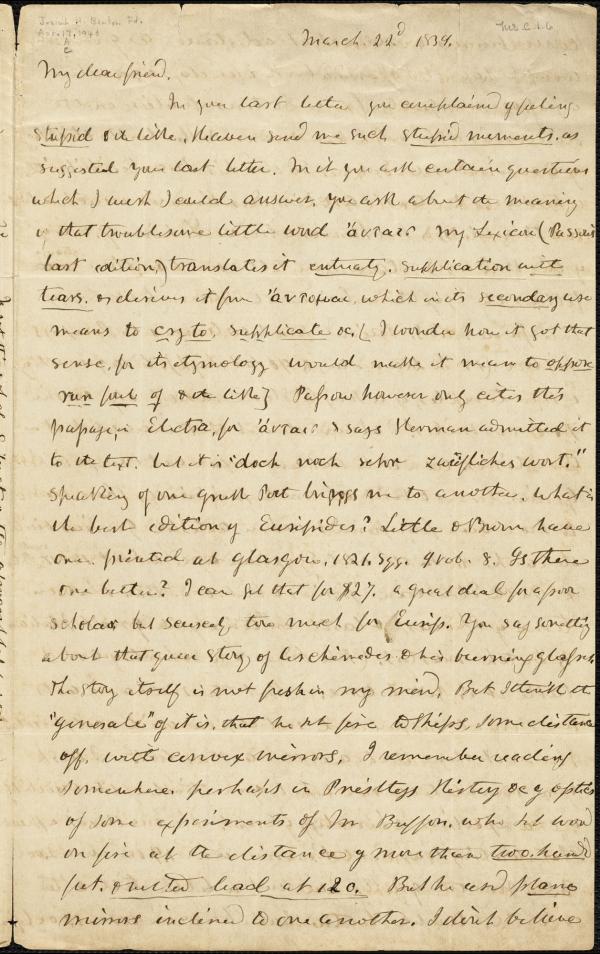 Josiah H. Benton Fd.
Apr. 17, 1941
A
C
Ms. C.1.6
March 22d 1839.
My dear friend.
In your last letter you complained of feeling
stupid & the like. Heaven send me such stupid moments, as
suggested your last letter. In it you ask certain questions
which I wish I could answer. You ask about the meaning
of that troublesome little word ἄνταις my Lexicon (Passow's
last edition,) translates it entreaty, supplication with
tears. & derives it from ἄντομαι, which in its secondary use
means to cry to, supplicate &c. ( I wonder how it got that
sense, for its etymology would make it mean to oppose
run foul of & the like] Passow however only cites this
passage, in Electra, for ἄνταις & says Herman admitted it
to the text. but it is "doch noch sehr zweifliches wort."
Speaking of one greek Poet brings me to another. What is
the best edition of Euripides? Little & Brown have
one printed at Glasgow, 1821. 9 vols. 8. Is there
one better? I can get that for $27. a great deal for a poor
scholar but scarcely too much for Eurip. You say something
about that queer story of Archimedes & his burning glasses.
The story itself is not fresh in my mind. But I think the
"generale" of it is, that he set fire to ships, some distance
off, with convex mirrors. I remember reading
somewhere perhaps in Priestleys History &c of optics
of some experiments of Mr Buffon. who set wood
on fire at the distance of more than two hund
feet. & melted lead at 120. But he used plane
mirrors inclined to one another. I don't believe